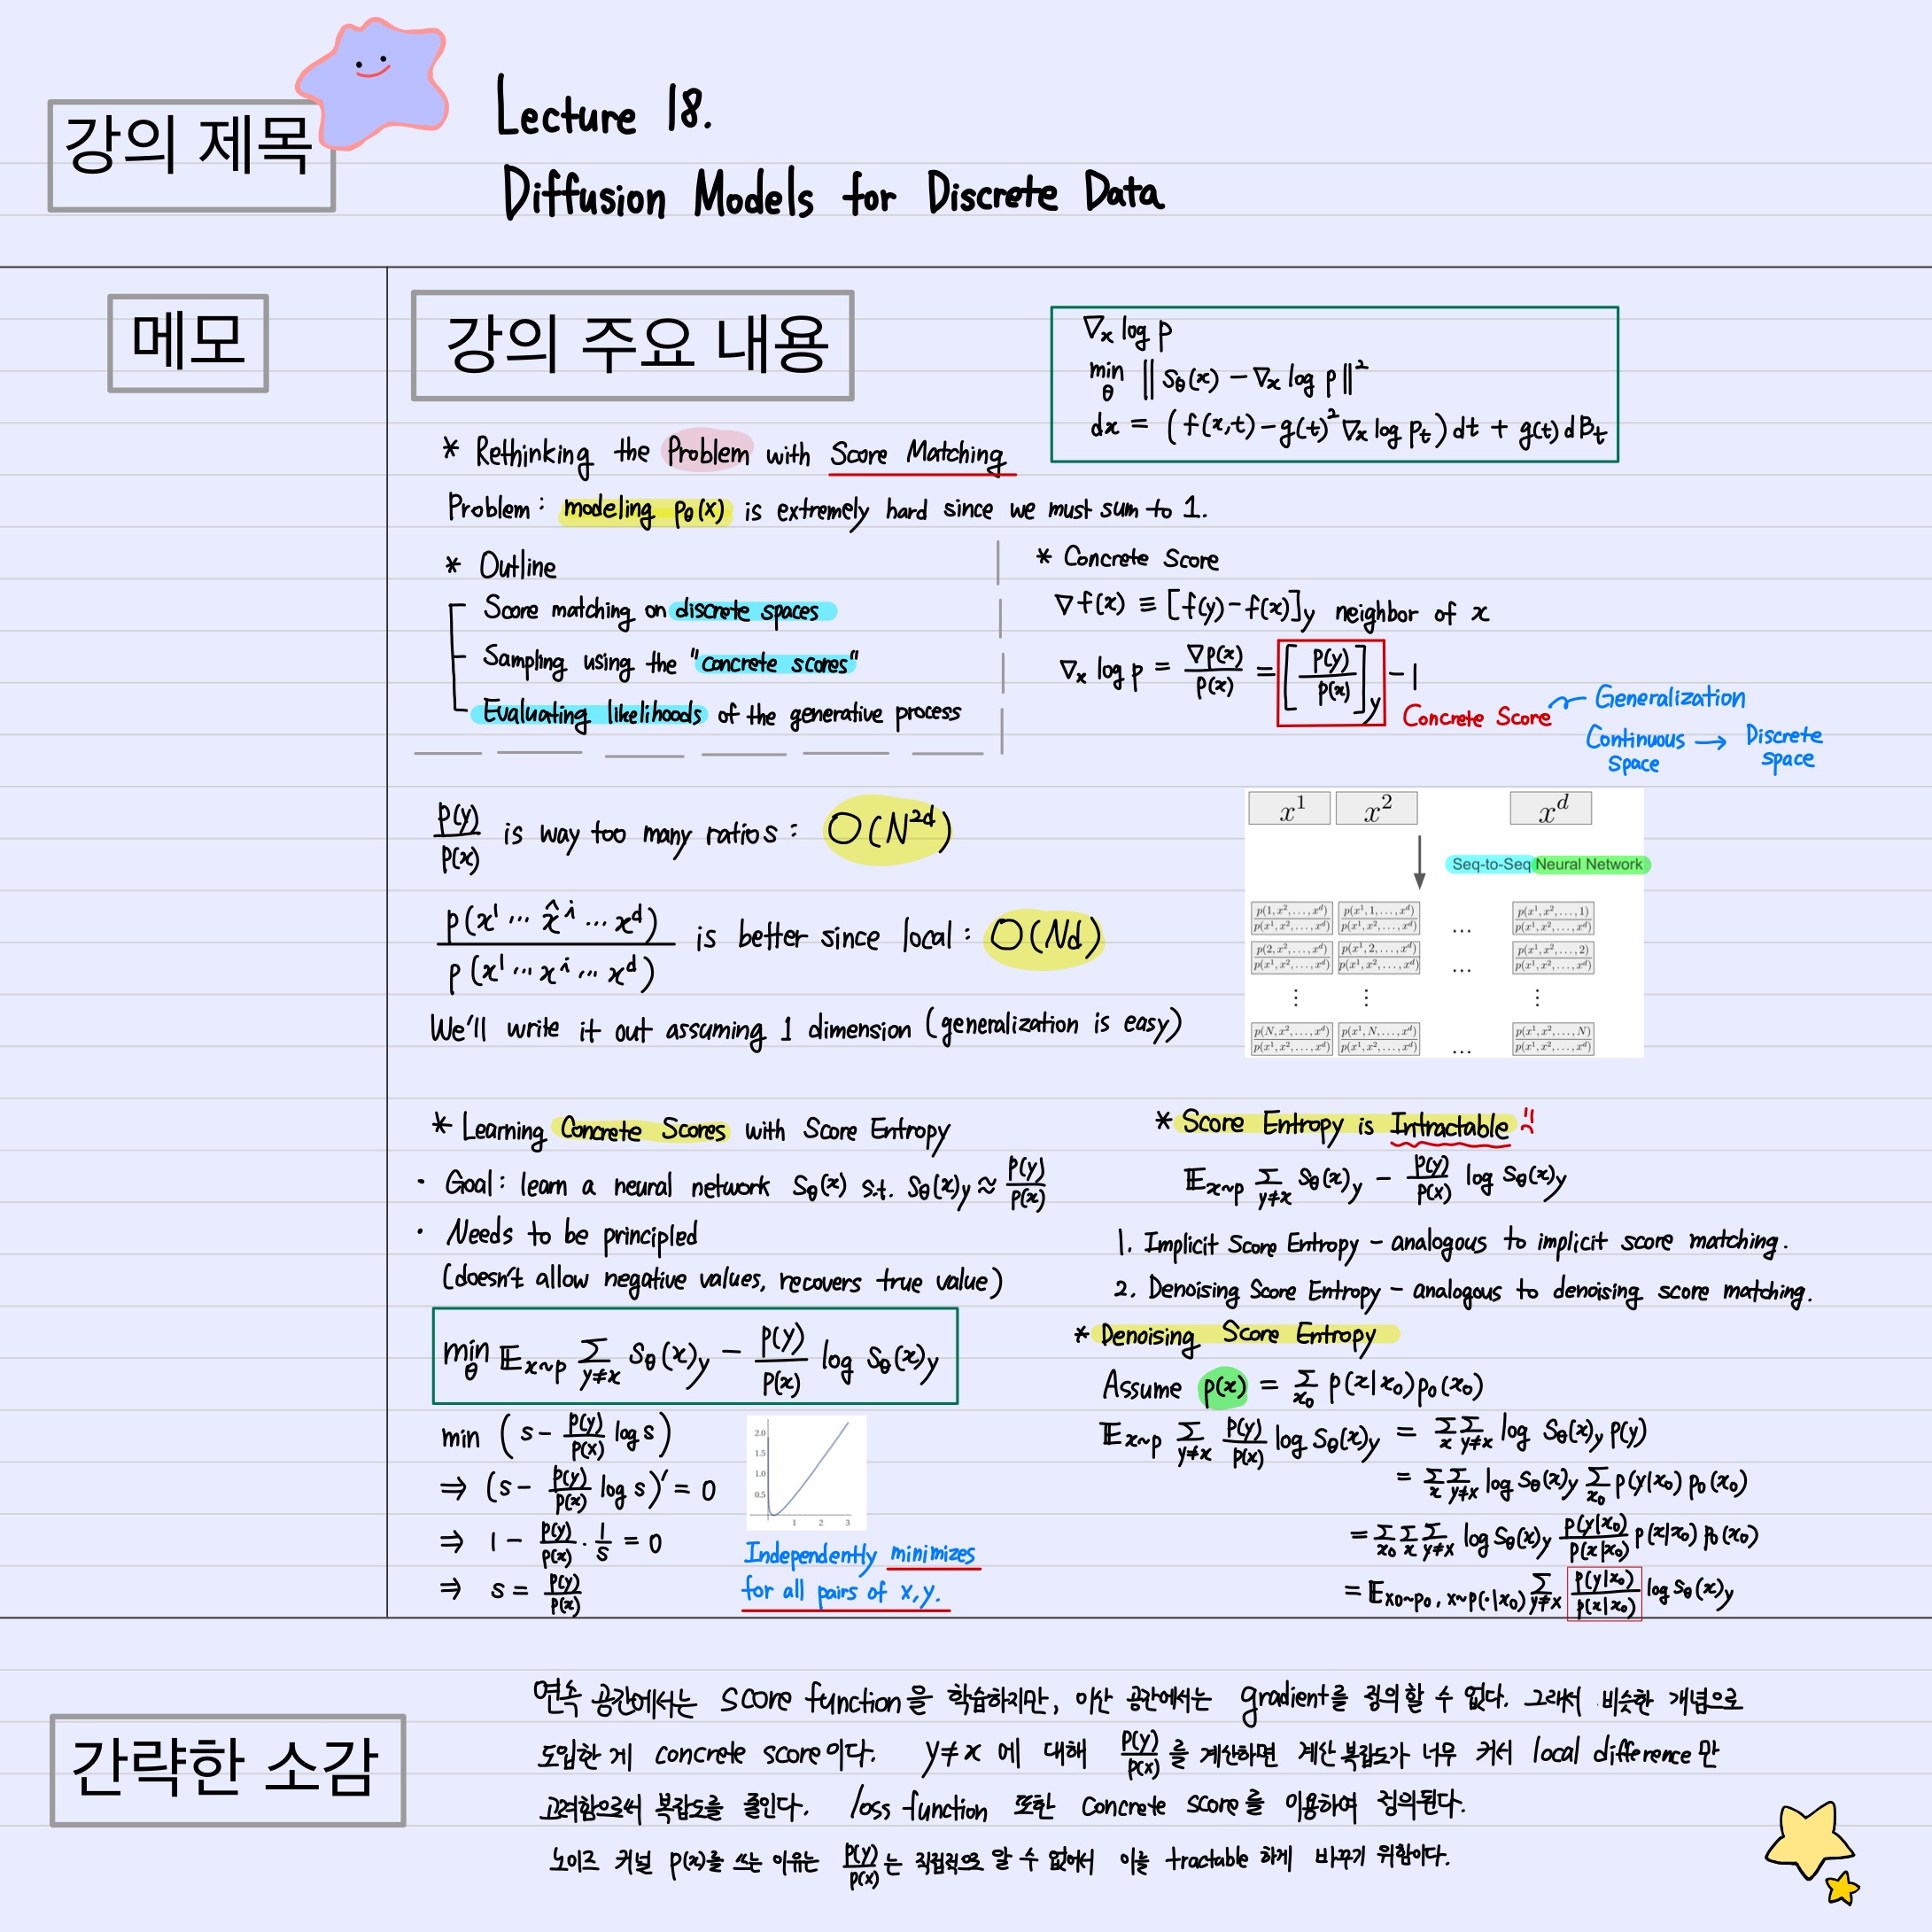 강의 제목
Lecture 18.
Diffusion Models for Discrete Data
메모
강의 주요 내용
∇ₓ log p
min_θ ‖ s_θ(x) − ∇ₓ log p ‖²
dx = (f(x,t) − g(t)² ∇ₓ log p_t) dt + g(t) dB_t
* Rethinking the Problem with Score Matching
Problem : modeling p_θ(x) is extremely hard since we must sum to 1.
* Outline
Score matching on discrete spaces
Sampling using the "concrete scores"
Evaluating likelihoods of the generative process
* Concrete Score
∇f(x) ≡ [f(y) − f(x)]_y neighbor of x
∇ₓ log p = ∇p(x)/p(x) = [p(y)/p(x)]_y − 1
Concrete Score
Generalization
Continuous space → Discrete space
p(y)/p(x) is way too many ratios : O(N^{2d})
p(x¹ ··· x̂ⁱ ··· x^d)/p(x¹ ··· xⁱ ··· x^d) is better since local : O(Nd)
We'll write it out assuming 1 dimension (generalization is easy)
x¹ x² x^d
Seq-to-Seq Neural Network
p(1, x², ..., x^d)/p(x¹, x², ..., x^d) p(x¹, 1, ..., x^d)/p(x¹, x², ..., x^d) ... p(x¹, x², ..., 1)/p(x¹, x², ..., x^d)
p(2, x², ..., x^d)/p(x¹, x², ..., x^d) p(x¹, 2, ..., x^d)/p(x¹, x², ..., x^d) ... p(x¹, x², ..., 2)/p(x¹, x², ..., x^d)
⋮ ⋮ ⋮
p(N, x², ..., x^d)/p(x¹, x², ..., x^d) p(x¹, N, ..., x^d)/p(x¹, x², ..., x^d) ... p(x¹, x², ..., N)/p(x¹, x², ..., x^d)
* Learning Concrete Scores with Score Entropy
· Goal : learn a neural network s_θ(x) s.t. s_θ(x)_y ≈ p(y)/p(x)
· Needs to be principled
(doesn't allow negative values, recovers true value)
min_θ 𝔼_{x~p} Σ_{y≠x} s_θ(x)_y − p(y)/p(x) log s_θ(x)_y
min (s − p(y)/p(x) log s)
⇒ (s − p(y)/p(x) log s)′ = 0
⇒ 1 − p(y)/p(x) · 1/s = 0
⇒ s = p(y)/p(x)
2.0
1.5
1.0
0.5
1 2 3
Independently minimizes
for all pairs of x,y.
* Score Entropy is Intractable !!
𝔼_{x~p} Σ_{y≠x} s_θ(x)_y − p(y)/p(x) log s_θ(x)_y
1. Implicit Score Entropy – analogous to implicit score matching.
2. Denoising Score Entropy – analogous to denoising score matching.
* Denoising Score Entropy
Assume p(x) = Σ_{x₀} p(x|x₀) p₀(x₀)
𝔼_{x~p} Σ_{y≠x} p(y)/p(x) log s_θ(x)_y = Σ_x Σ_{y≠x} log s_θ(x)_y p(y)
= Σ_x Σ_{y≠x} log s_θ(x)_y Σ_{x₀} p(y|x₀) p₀(x₀)
= Σ_{x₀} Σ_x Σ_{y≠x} log s_θ(x)_y p(y|x₀)/p(x|x₀) p(x|x₀) p₀(x₀)
= 𝔼_{x₀~p₀, x~p(·|x₀)} Σ_{y≠x} p(y|x₀)/p(x|x₀) log s_θ(x)_y
간략한 소감
연속 공간에서는 score function을 학습하지만, 이산 공간에서는 gradient를 정의할 수 없다. 그래서 비슷한 개념으로
도입한 게 concrete score이다. y≠x 에 대해 p(y)/p(x)를 계산하면 계산 복잡도가 너무 커서 local difference만
고려함으로써 복잡도를 줄인다. loss function 또한 concrete score를 이용하여 정의된다.
노이즈 커널 p(x)를 쓰는 이유는 p(y)/p(x)는 직접적으로 알 수 없어서 이를 tractable 하게 바꾸기 위함이다.